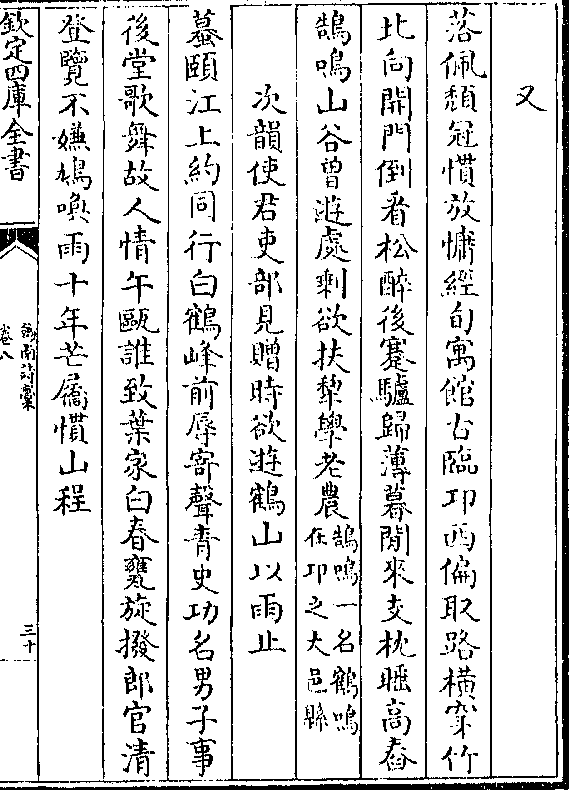 又
落佩頽冠慣放慵經旬寓館古臨邛西偏取路横穿竹
北向開門倒看松醉後蹇驢歸薄暮閒來支枕睡高舂
鵠鳴山谷曾遊處剰欲扶犂學老農鵠鳴一名鶴鳴
在邛之大邑縣
次韻使君吏部見贈時欲遊鶴山以雨止
蟇頤江上約同行白鶴峰前辱寄聲青史功名男子事
後堂歌舞故人情午甌誰致葉家白春甕旋撥郎官清
登覽不嫌鳩喚雨十年芒屩慣山程
欽定四庫全書
劍南詩稾
卷八
三十